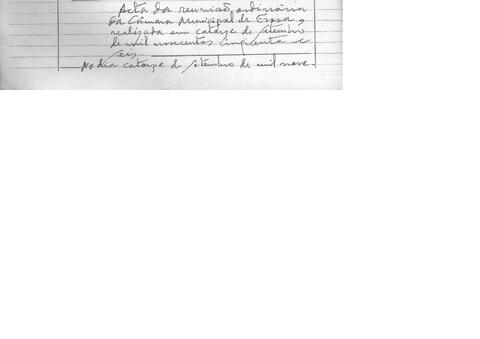 Acta da reunião ordinária
da Câmara Municipal de
realizada em catorze de setembro
de mil novecentos cinquenta e
seis.
No dia catorze de setembro de mil nove-